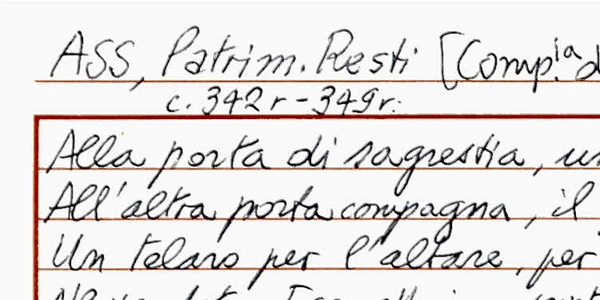 ASS, Patrim. Resti [Comp.ia d
c. 342r-349r:
Alla porta di sagrestia, un
All'altra porta compagna, il
Un telaro per l'altare, per